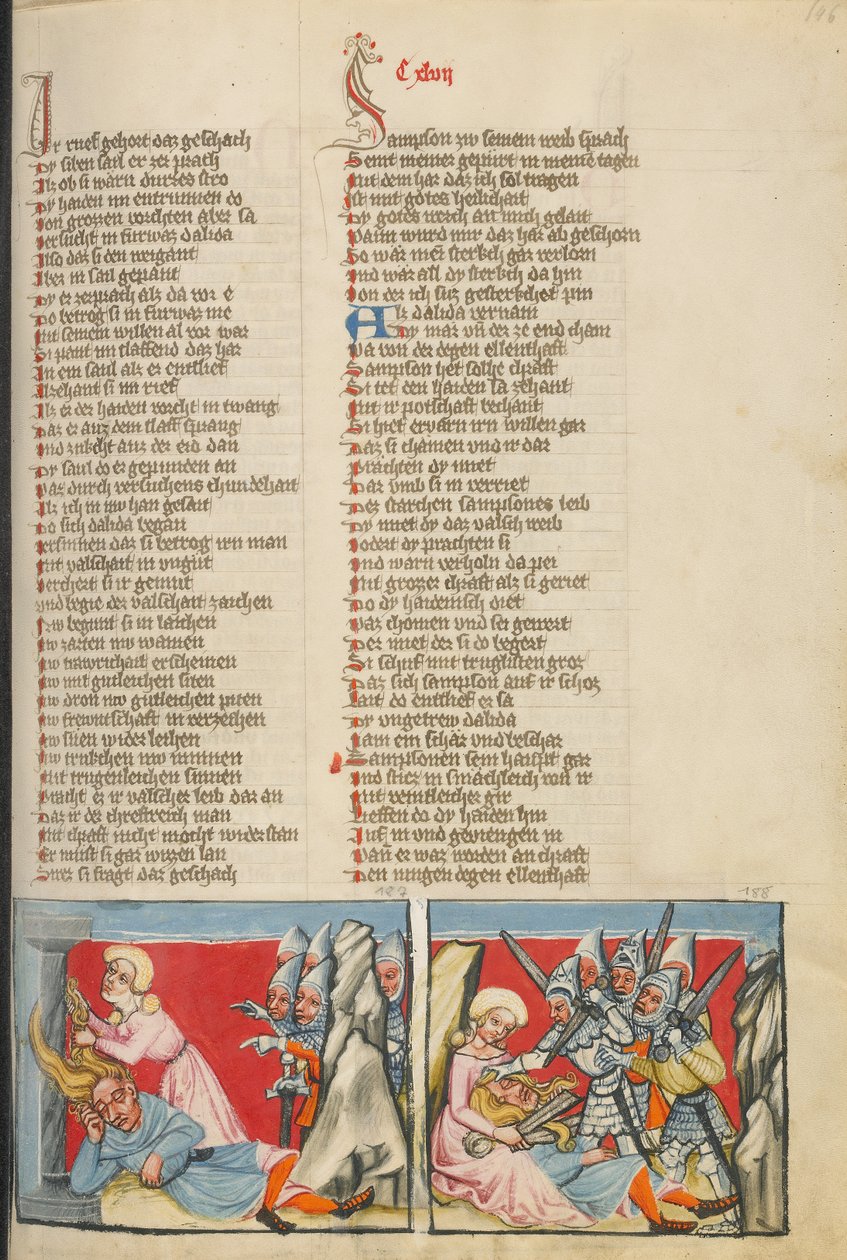 146
Cxlvij
Ir rueff gehort daz geschach
Dy siben sail er zer prach
Alz ob si warn durres stro
Dy haiden im entrunnen do
Von grozzen vorchten aber sa
Versucht in furwaz dalida
Also daz si den weigant
Aber in sail gepant
Dy er zerprach alz da vor e
Do betrog si in furwaz me
Mit seinem willen al vor war
Si pant im slaffend daz har
In em sail alz er entslieff
Alzehant si im rieff
Alz er der haiden vorcht in twang
Daz er auz dem slaff sprang
Und zukcht auz der erd dan
Dy saul do er gepunden an
Waz durch versuchens chundehait
Alz ich in nw han gesait
Do sich dalida began
Versinnen daz si betrog irn man
Mit valschait in ungut
Verchert si ir gemut
Und begie der valschait zaichen
Nw begunt si in laichen
Nw zarten nw wainen
Nw trawrichait erscheinen
Nw mit gutleichen siten
Nw dron nw gutleichen piten
Nw frewntschafft im verzechen
Nw suen wider leihen
Nw trukchen nw minnen
Mit trugenleichen sinnen
Pracht er ir valscher leib dar an
Daz ir der chrefftreich man
Mit chrafft nicht mocht widerstan
Er must si gar wizzen lan
Swez si fragt daz geschach
Sampson zw seinem weib sprach
Seint meiner gepurt in meine tagen
Mit dem har daz ich sol tragen
Ist mit gotes heilichait
Dy gotes weich an mich gelait
Wann wurd mir daz har ab geschorn
So wär mei sterkch gar verlorn
Und wär all dy sterkch da hin
Von der ich suz gesterkchet pin
Alz dalida vernam
Dy mär vn der ze end cham
Wa von der degen ellenthafft
Sampson het solhe chrafft
Si tet den haiden sa zehant
Mit ir potschafft bechant
Si hiet ervarn irn willen gar
Daz si chamen und ir dar
Prachten dy miet
Dar umb si in verriet
Dez starchen sampsones leib
Dy miet dy daz valsch weib
Vodert dy prachten si
Und warn verholn da pei
Mit grozzer chrafft alz si geriet
Do dy haidenisch diet
Waz chomen und sei gewert
Der miet der si do begert
Si schuff mit truglisten groz
Daz sich sampson auf ir schoz
Lait do entslieff er sa
Dy ungetrew dalida
Nam ein schär und beschar
Sampsonen sein haupt gar
Und stiez in smächleich von ir
Mit veintleicher gir
Lieffen do dy haiden hin
Auf in und geviengen in
Wan er waz worden an chrafft
Den mugen degen ellenthafft
187
188